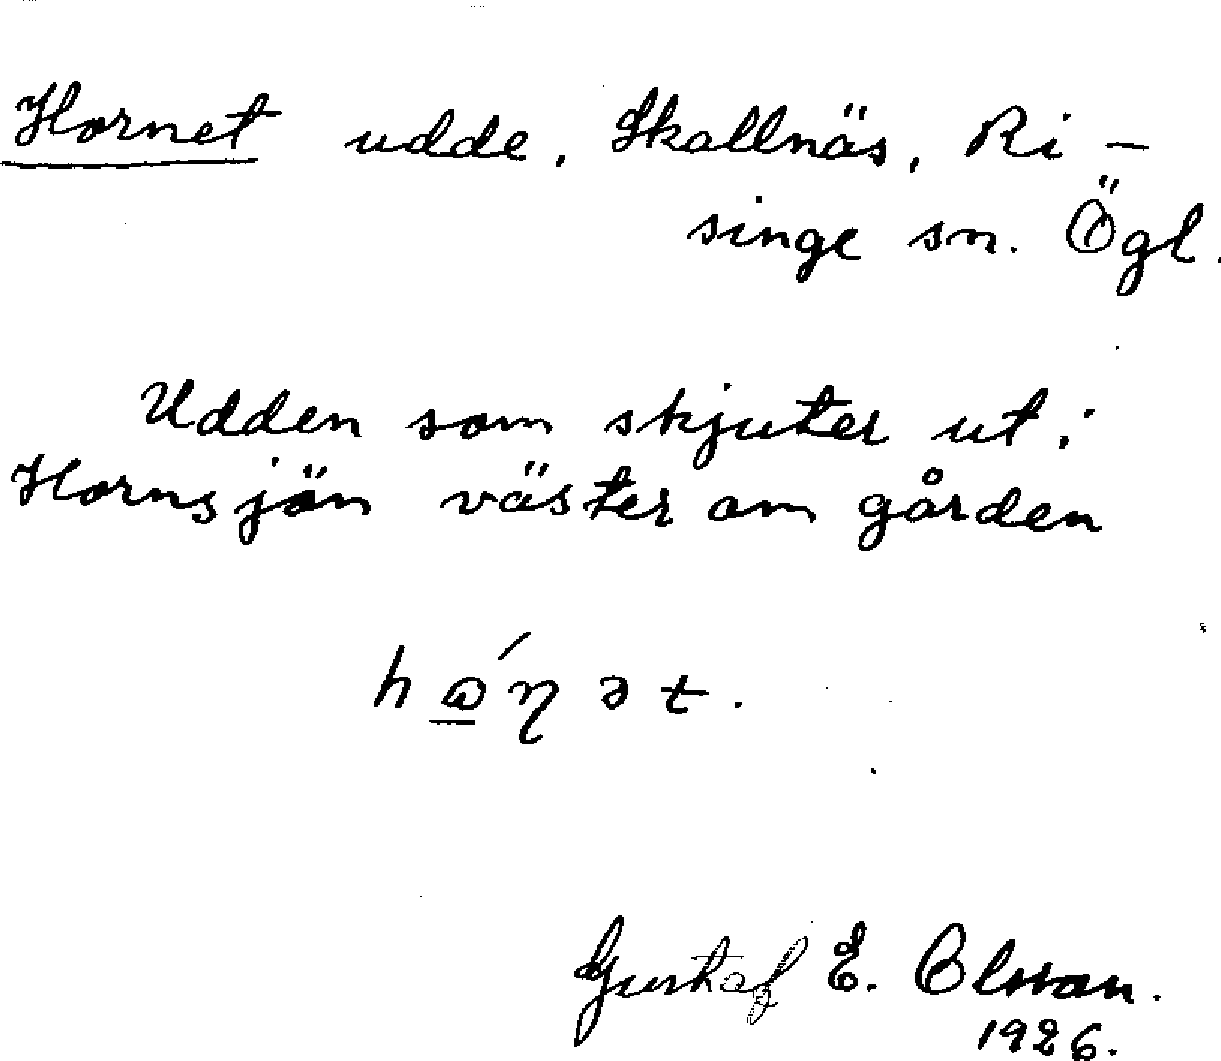 Hornet udde, Skallnäs, Ri-
singe sn. Ögl.
Udden som skjuter ut i
Hornsjön väster om gården
Gustaf E. Olsson.
1926.